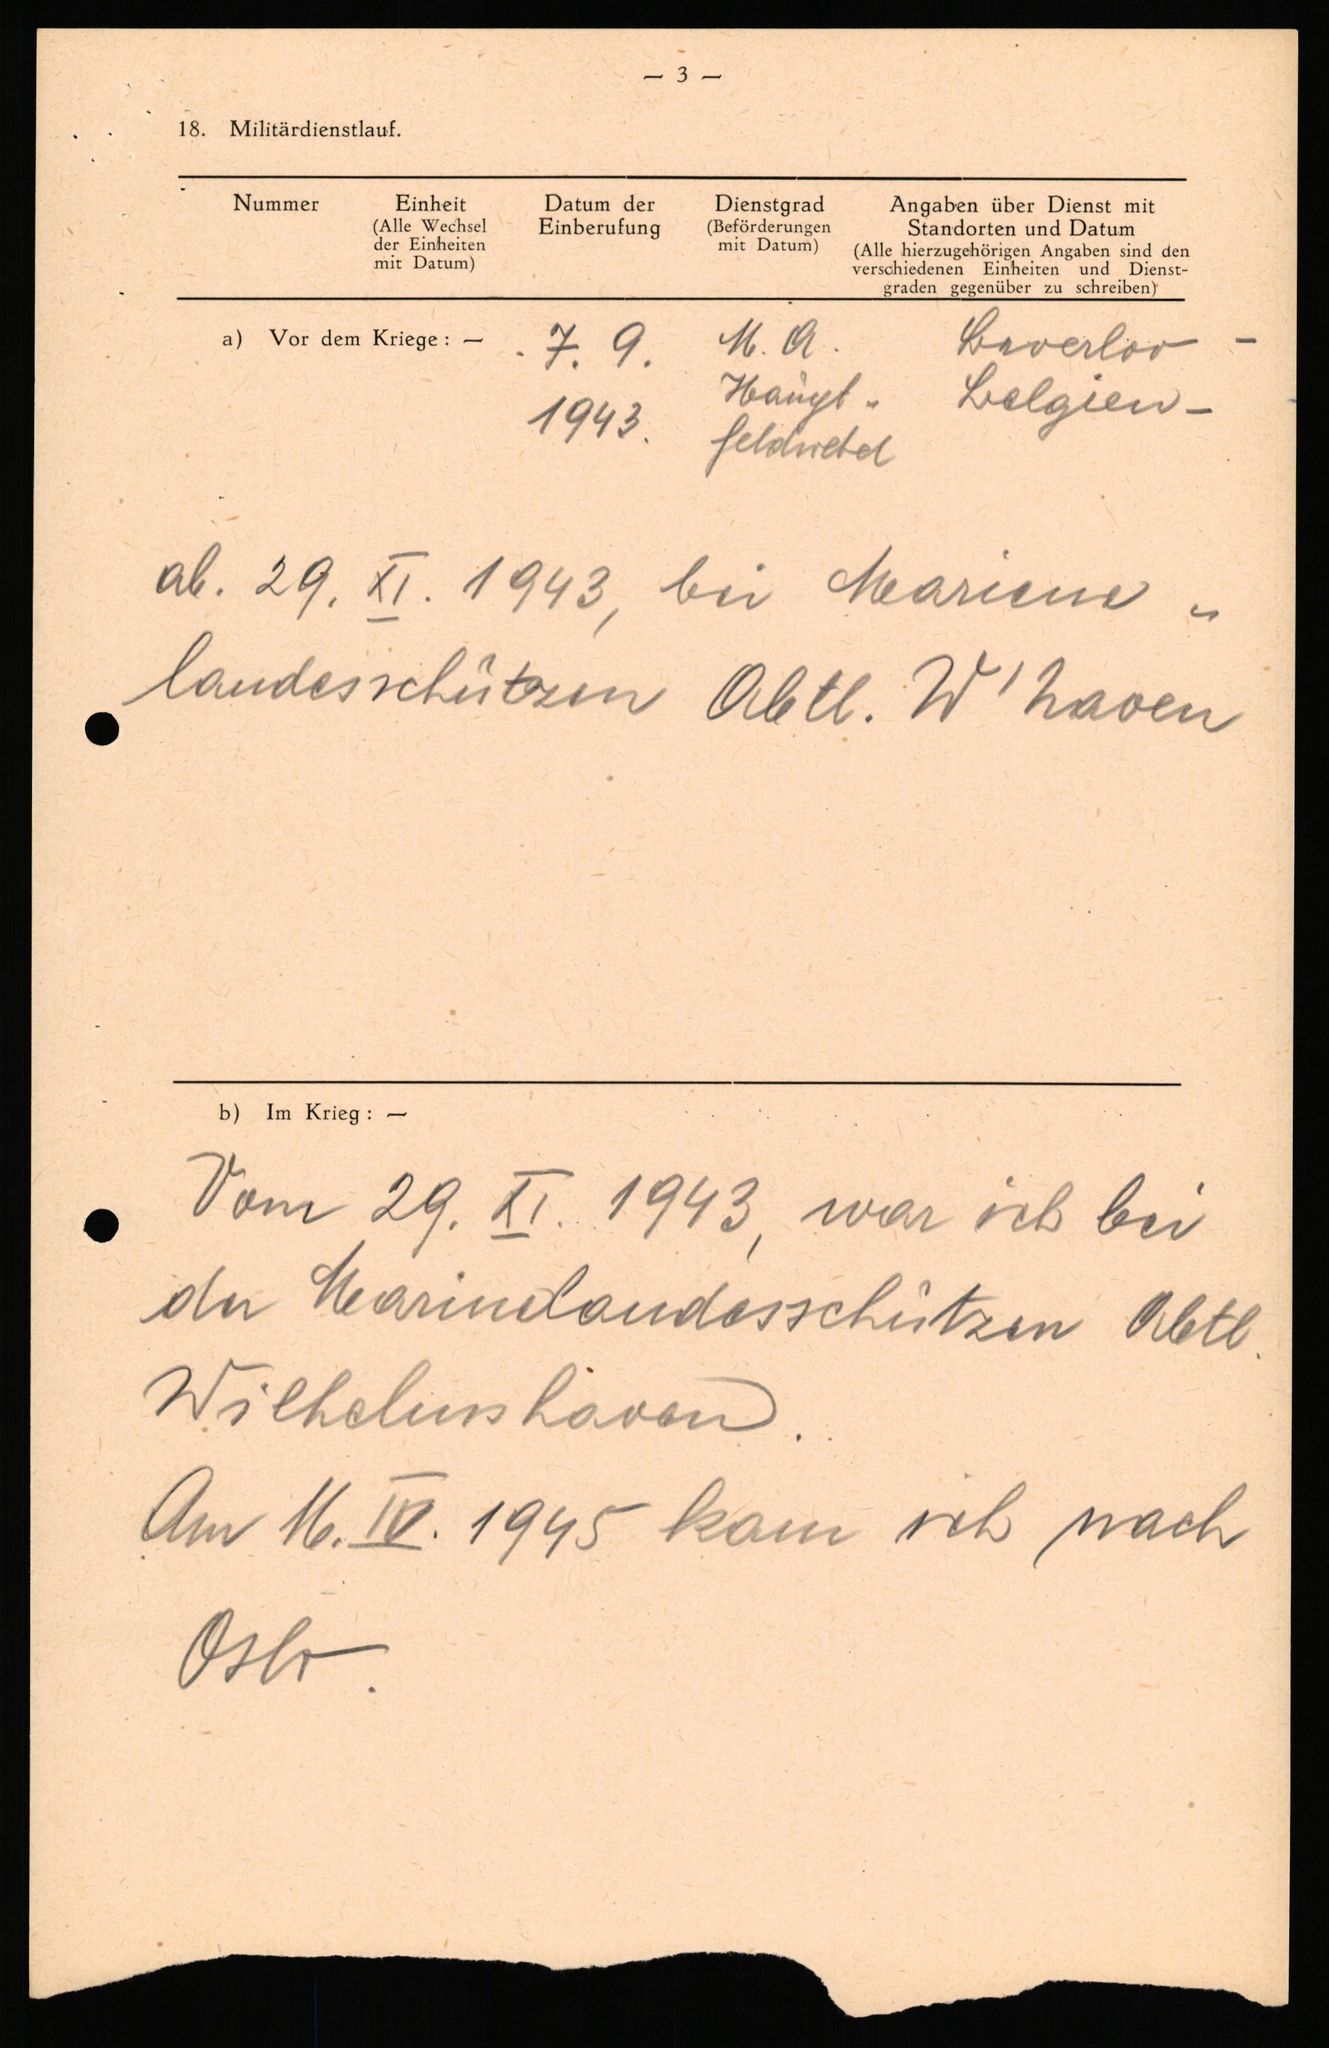 — 3 —
18. Militärdienstlauf.
Nummer
Einheit
(Alle Wechsel
der Einheiten
mit Datum)
Datum der
Einberufung
Dienstgrad
(Beförderungen
mit Datum)
Angaben über Dienst mit
Standorten und Datum
(Alle hierzugehörigen Angaben sind den
verschiedenen Einheiten und Dienst-
graden gegenüber zu schreiben)
a) Vor dem Kriege: — 7. 9. M. A. Beverloo -
1943. Haupt- Belgien -
feldwebel
ab. 29. XI. 1943, bei Mariene -
landesschützen Abtl. W'haven
b) Im Krieg: —
Vom 29. XI. 1943, war ich bei
der Marinelandesschützen Abtl.
Wilhelmshaven.
Am 16. IV. 1945 kam ich nach
Oslo.